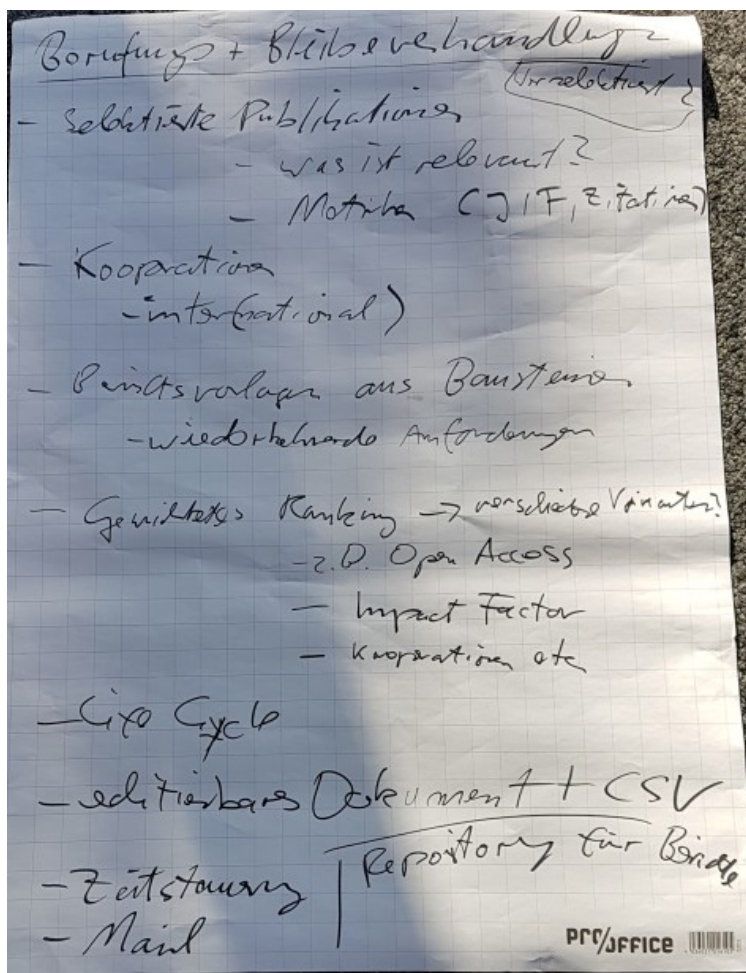 Berufungs + Bleibeverhandlungen
Vorselektiert
- Selektierte Publikationen
- was ist relevant?
- Metriken (JIF, Zitationen)
- Kooperationen
- inter(national)
- Berichtsvorlagen aus Bausteinen
- wiederkehrende Anforderungen
- Gewichtetes Ranking → verschiedene Varianten?
- z.B. Open Access
- Impact Factor
- Kooperationen etc
- Life Cycle
- editierbares Dokument + CSV
Repository für Berichte
- Zeitsteuerung
- Mail
PRO/OFFICE